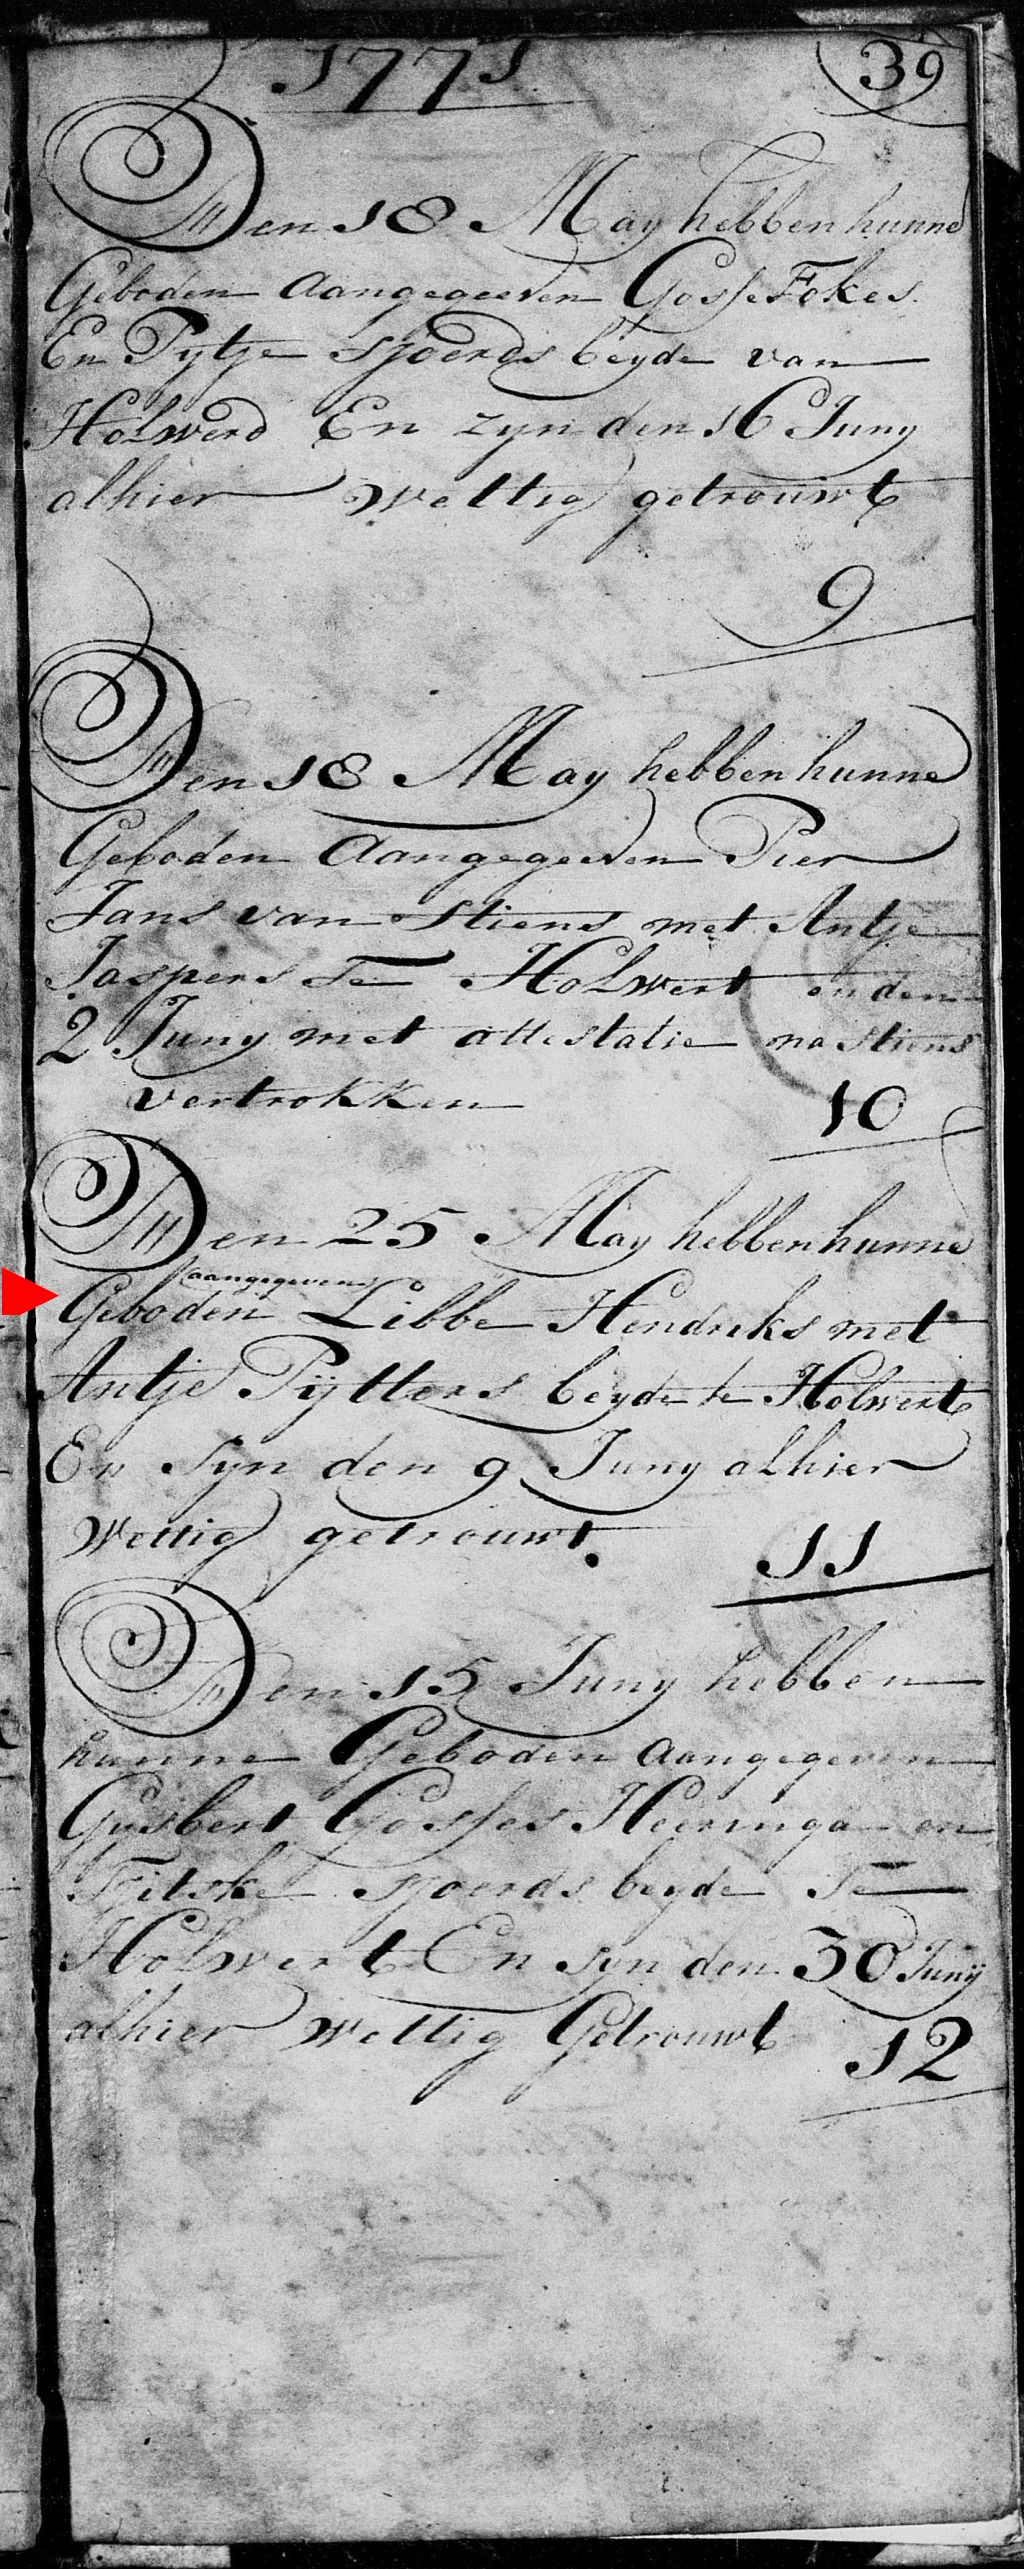 1771
39
Den 18 May hebben hunne
Geboden aangegeeven Gosse Fokes
En Pytje Sjoerds beyde van
Holwerd En zyn den 16 Juny
alhier Wettig getrouwt
9
Den 18 May hebben hunne
Geboden Aangegeeven Pier
Jans van Stiens met Antje
Jaspers Te Holwert en den
2 Juny met attestatie na Stiens
vertrokken
10
Den 25 May hebben hunne
aangegeven
Geboden Libbe Hendriks met
Antje Pÿtters beyde te Holwert
En Syn den 9 Juny alhier
Wettig getrouwt.
11
Den 15 Juny hebben
hunne Geboden Aangegeven
Gysbert Gosses Heeringa en
Tjitske Sjoerds beyde Te
Holwert En syn den 30 Junÿ
alhier Wettig Getrouwt
12